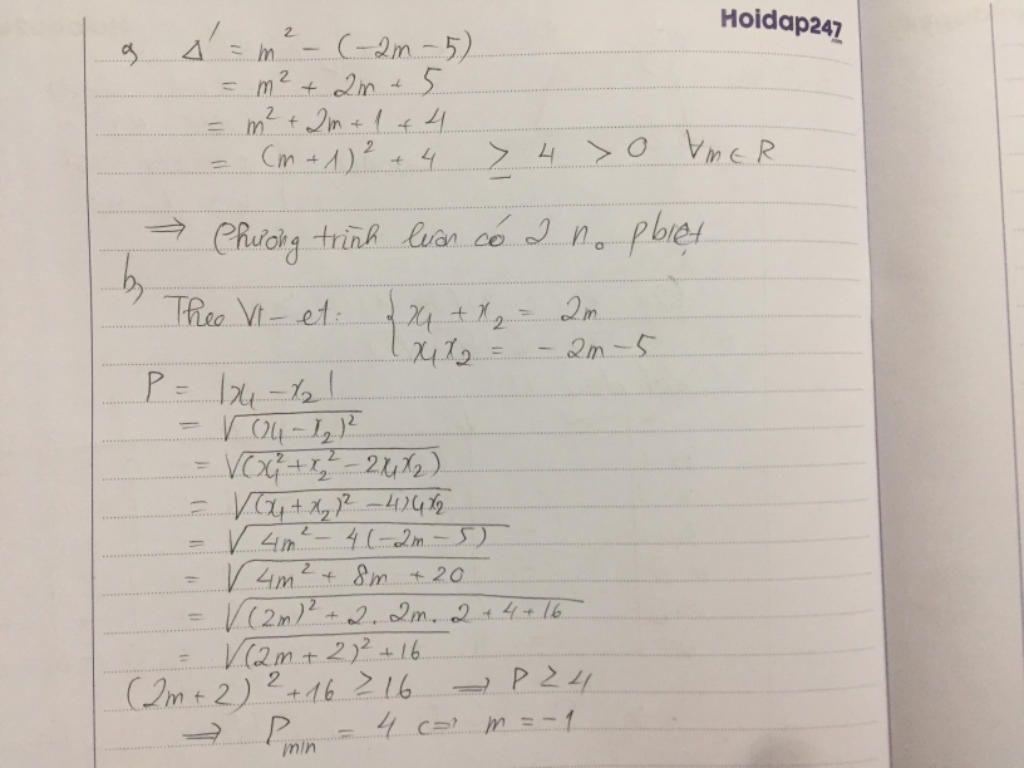 Hoidap247
a, Δ' = m² - (-2m - 5)
= m² + 2m + 5
= m² + 2m + 1 + 4
= (m + 1)² + 4 ≥ 4 > 0 ∀m ∈ R
⇒ Phương trình luôn có 2 no pbiệt
b,
Theo Vi-et: { x₁ + x₂ = 2m
x₁x₂ = -2m - 5
P = |x₁ - x₂|
= √(x₁ - x₂)²
= √(x₁² + x₂² - 2x₁x₂)
= √(x₁ + x₂)² - 4x₁x₂
= √4m² - 4(-2m - 5)
= √4m² + 8m + 20
= √(2m)² + 2. 2m. 2 + 4 + 16
= √(2m + 2)² + 16
(2m + 2)² + 16 ≥ 16 → P ≥ 4
⇒ Pmin = 4 ⇔ m = -1